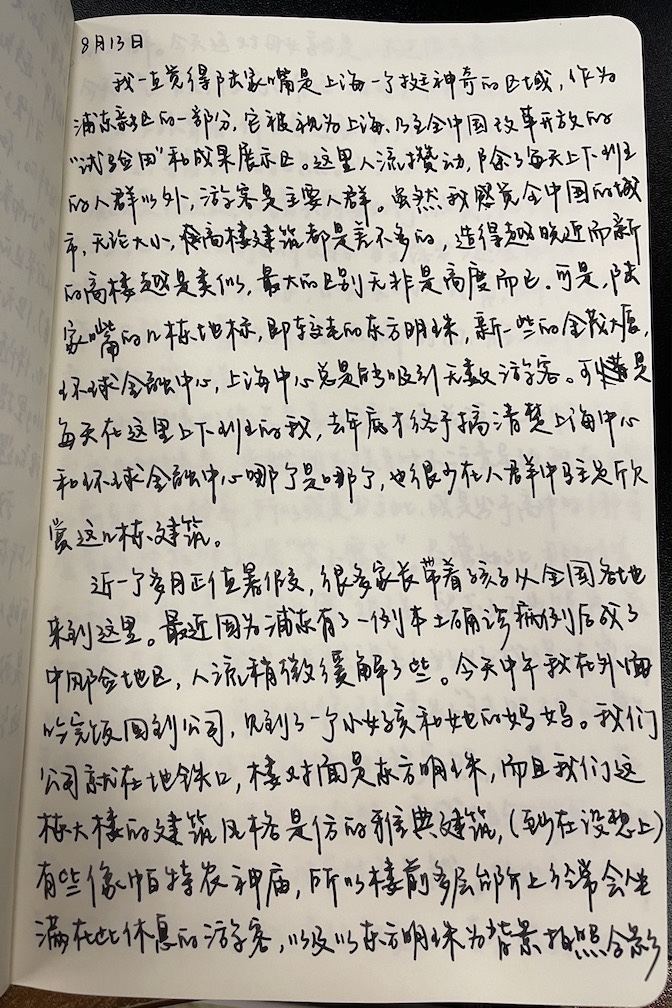 8月13日
我一直觉得陆家嘴是上海一个挺神奇的区域,作为
浦东新区的一部分,它被视为上海、乃至全中国改革开放的
“试验田”和成果展示区。这里人流攒动,除了每天上下班
的人群以外,游客是主要人群。虽然我感觉全中国的城
市,无论大小,高楼建筑都是差不多的,造得越晚近而新
的高楼越是类似,最大的区别无非是高度而已。可是,陆
家嘴的几栋地标,即较老的东方明珠,新一些的金茂大厦,
环球金融中心,上海中心总是能吸引无数游客。可是
每天在这里上下班的我,去年底才终于搞清楚上海中心
和环球金融中心哪个是哪个,也很少在人群中驻足欣
赏这几栋建筑。
近一个多月正值暑假,很多家长带着孩子从全国各地
来到这里。最近因为浦东有了一例本土确诊病例后成了
中风险地区,人流稍微缓解了些。今天中午我在外面
吃完饭回到公司,见到了一个小女孩和她的妈妈。我们
公司就在地铁口,楼对面是东方明珠,而且我们这
栋大楼的建筑风格是仿的雅典建筑,(至少在设想上)
有些像帕特农神庙,所以楼前多层台阶上经常会坐
满在此休息的游客,以及以东方明珠为背景拍照合影